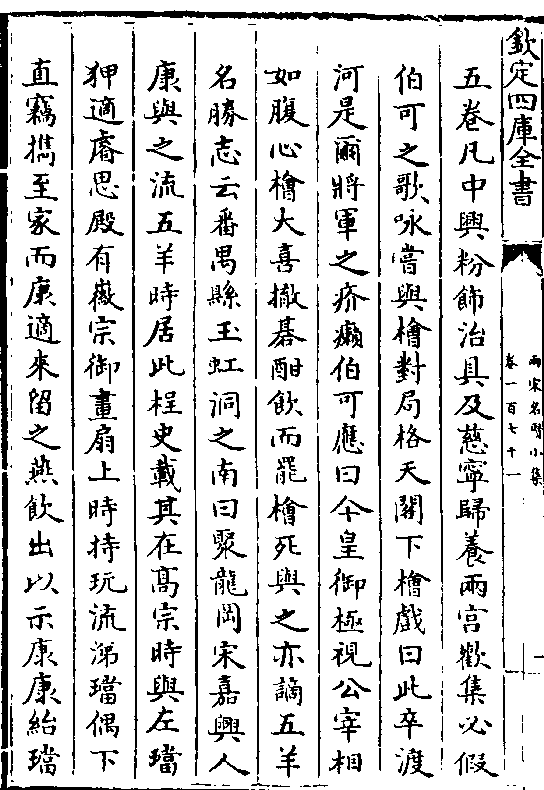 欽定四庫全書
兩宋名賢小集
卷一百七十一
五卷凡中興粉飾治具及慈寧歸養兩宫歡集必假
伯可之歌咏嘗與檜對局格天閣下檜戲曰此卒渡
河是爾將軍之疥癩伯可應曰今皇御極視公宰相
如腹心檜大喜撤棊酣飲而罷檜死與之亦謫五羊
名勝志云番禺縣玉虹洞之南曰聚龍岡宋嘉興人
康與之流五羊時居此桯史載其在髙宗時與左璫
狎適睿思殿有徽宗御畫扇上時持玩流涕璫偶下
直竊擕至家而康適來留之燕飲出以示康康紿璫